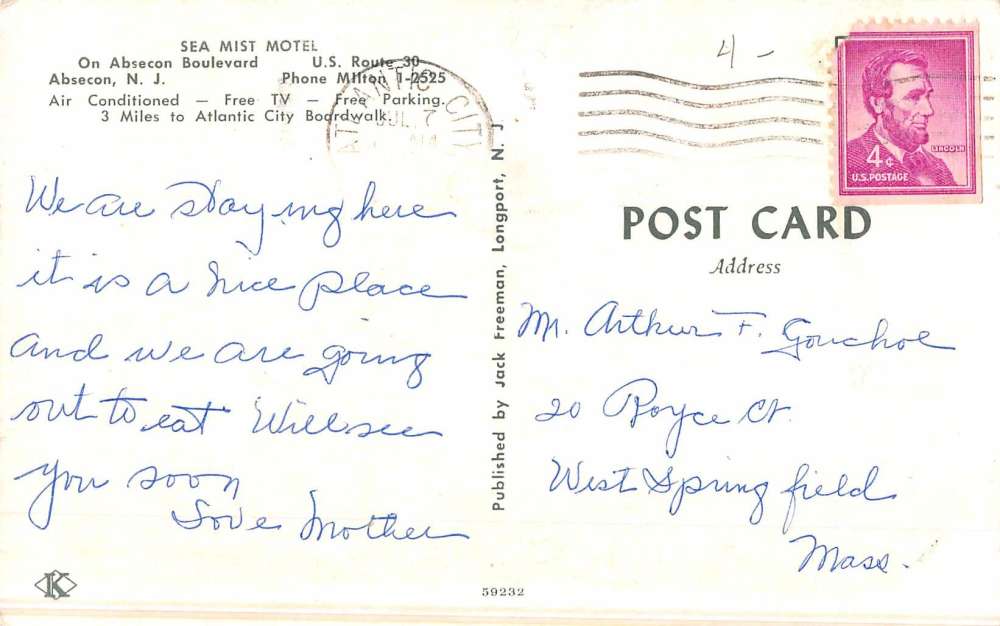 SEA MIST MOTEL
On Absecon Boulevard U.S. Route 30
Absecon, N. J. Phone Milton 1-2525
Air Conditioned — Free TV — Free Parking.
3 Miles to Atlantic City Boardwalk.
ATLANTIC CITY
JUL 7
We are staying here
it is a nice place
and we are going
out to eat Will see
you soon
Love Mother
K
Published by Jack Freeman, Longport, N. J
59232
4 -
LINCOLN
4¢
U.S. POSTAGE
POST CARD
Address
Mr. Arthur F. Gouchoe
20 Royce Ct.
West Springfield
Mass.